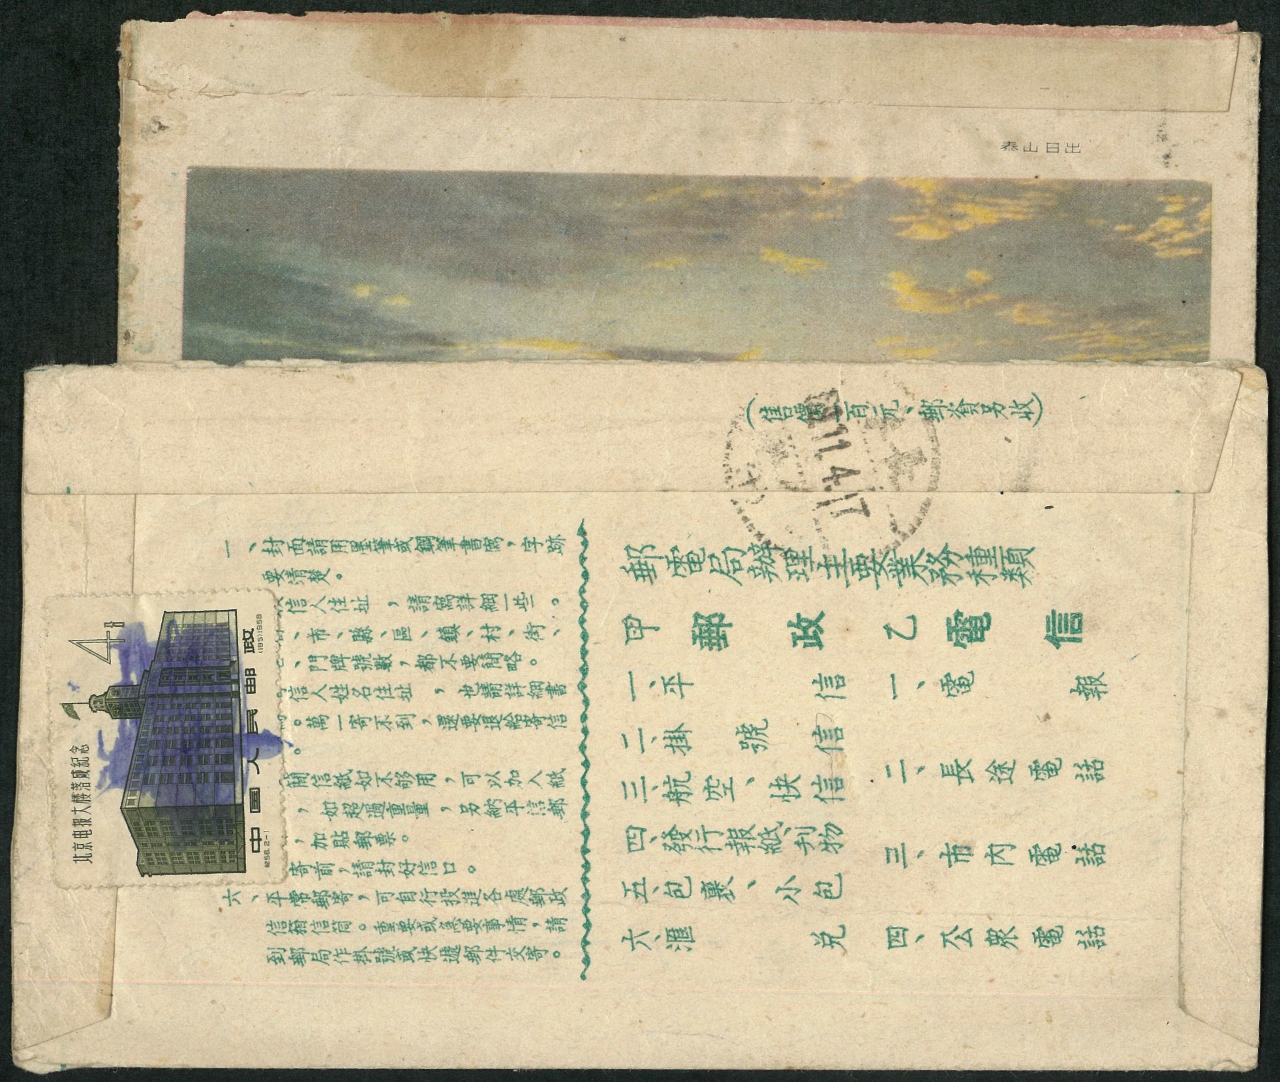 泰山日出
(售價 百元、郵資另收)
11.4.17
郵電局辦理主要業務種類
甲 郵政
一、平信
二、掛號信
三、航空、快信
四、發行報紙、刊物
五、包裹、小包
六、滙兌
乙 電信
一、電報
二、長途電話
三、市內電話
四、公衆電話
一、封面請用墨筆或鋼筆書寫，字跡
要清楚。
信人住址，請寫詳細一些。
、市、縣、區、鎮、村、街、
、門牌號數，都不要簡略。
信人姓名住址，也請詳細書
。萬一寄不到，還要退給寄信
。
簡信紙如不够用，可以加入紙
，如超過重量，另納平信郵
，加貼郵票。
寄前，請封好信口。
六、平常郵寄，可自行投進各處郵政
信箱信筒。重要或急要事情，請
到郵局作掛號或快遞郵件交寄。
4分
北京电报大楼落成紀念
中國人民郵政
紀56.2-1
(185)1958